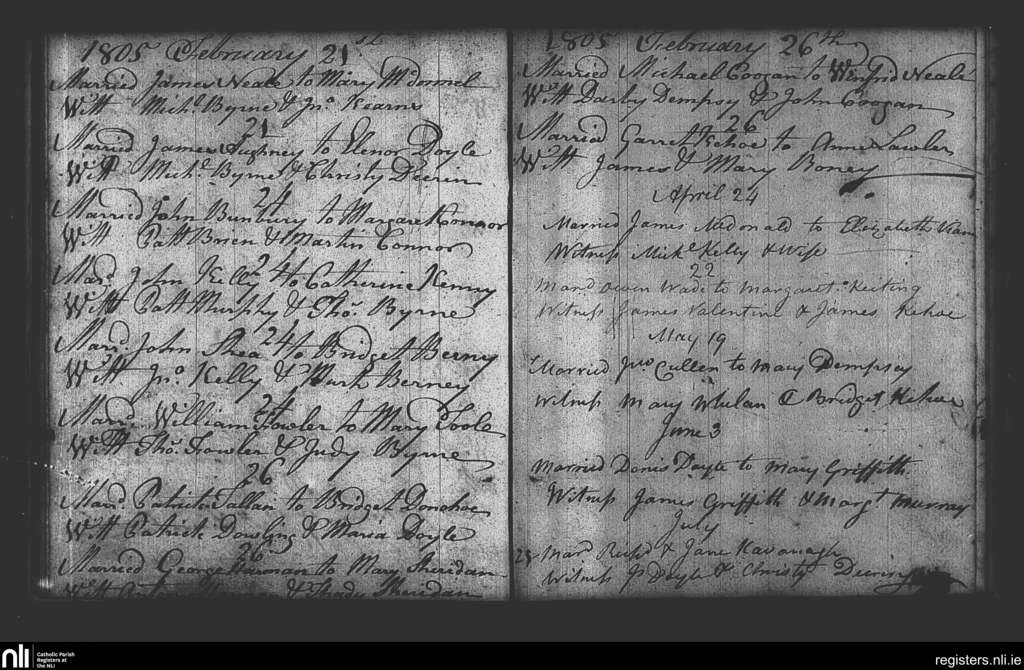 1805 February 21st
Married James Neale to Mary McDonnel
Witt Michl. Byrne & Jno. Kearns
21
Married James to Elenor Doyle
Witt Michl. Byrne & Christy Deerin
24
Married John Bunbury to Margaret Konnor
Witt Patt Brien & Martin Connor
24
Mard. John Kelly to Catherine Kenny
Witt Patt Murphy & Thos. Byrne
24
Mard. John Shea to Bridget Berny
Witt Jno. Kelly & Mark Berney
24
Mard. William Fowler to Mary Toole
Witt Thos. Fowler & Judy Byrne
26
Mard. Patrick to Bridget Donohoe
Witt Patrick Dowling & Maria Doyle
26
Married George to Mary Sheridan
Witt & Thady Sheridan
1805 February 26th
Married Michael Coogan to Winifrid Neale
Witt Darby Dempsy & John Coogan
26
Married Garret Kehoe to Anne Lawler
Witt James & Mary Roney
April 24
Married James McDonald to Elizabeth
Witness Mick Kelly & Wife
22
Mard. Owen Wade to Margaret Keiting
Witness James Valentine & James Kehoe
May 19
Married Jno Cullen to Mary Dempsey
Witness Mary Whelan & Bridget Kehoe
June 3
Married Denis Doyle to Mary Griffith
Witness James Griffith & Margt Murray
July
Mard Richd & Jane Kavanagh
Witness Js Doyle & Christy
nli
Catholic Parish
Registers at
the NLI
registers.nli.ie